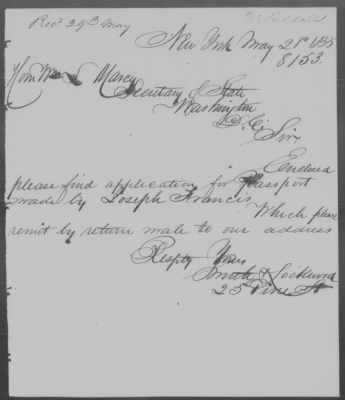 Recd 29th May
New York May 28th 1855
8153.
Hon Wm L Marcy
Secretary of State
Washington
D. C.
Sir
Enclosed
please find application for Passport
made by Joseph Francis
Which please
remit by return male to our address
Respty Yours
Smith & Lockwood
25 Pine St